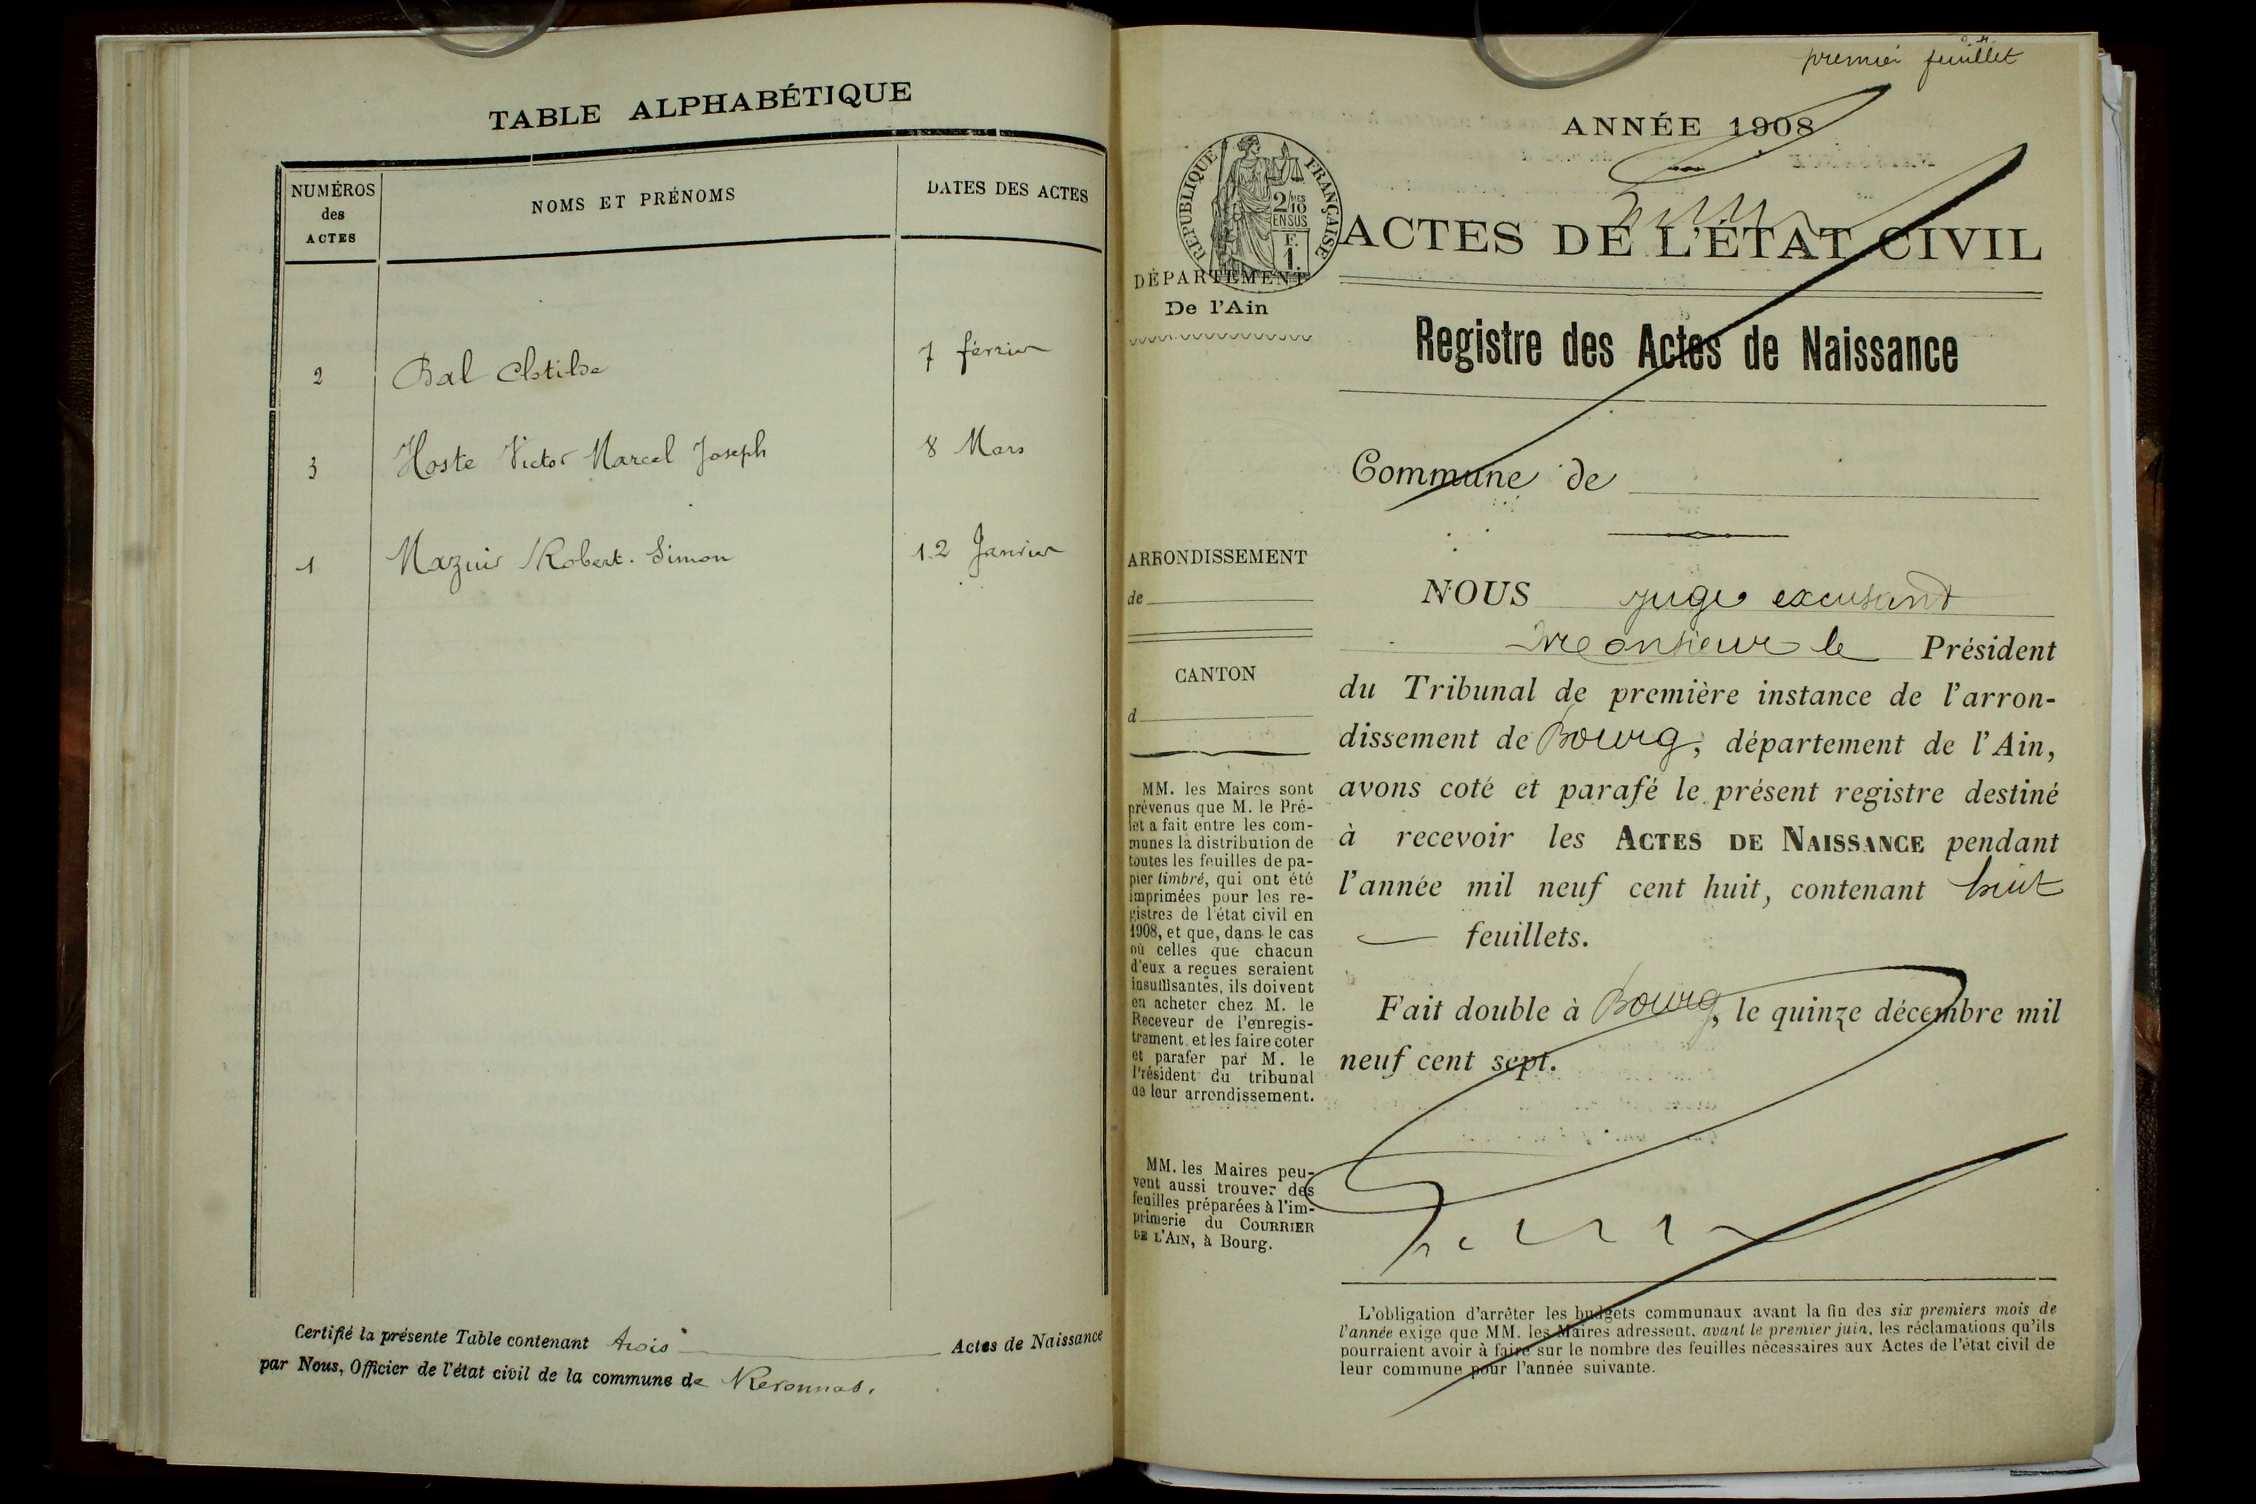 TABLE ALPHABÉTIQUE
NUMÉROS
des
ACTES
NOMS ET PRÉNOMS
DATES DES ACTES
2 Bal Clotilde 7 février
3 Hoste Victor Marcel Joseph 8 Mars
1 Mazuir Robert. Simon 12 Janvier
Certifié la présente Table contenant trois Actes de Naissance
par Nous, Officier de l'état civil de la commune de Reronnas.
premier feuillet
ANNÉE 1908
RÉPUBLIQUE FRANÇAISE
2/10 MES
EN SUS
F.
1.
ACTES DE L'ÉTAT CIVIL
DÉPARTEMENT
De l'Ain
Registre des Actes de Naissance
Commune de
ARRONDISSEMENT
de
CANTON
d
MM. les Maires sont
prévenus que M. le Pré-
fet a fait entre les com-
munes la distribution de
toutes les feuilles de pa-
pier timbré, qui ont été
imprimées pour les re-
gistres de l'état civil en
1908, et que, dans le cas
où celles que chacun
d'eux a reçues seraient
insuffisantes, ils doivent
en acheter chez M. le
Receveur de l'enregis-
trement et les faire coter
et parafer par M. le
Président du tribunal
de leur arrondissement.
MM. les Maires peu-
vent aussi trouver des
feuilles préparées à l'im-
primerie du COURRIER
DE L'AIN, à Bourg.
NOUS juge excusant
Monsieur le Président
du Tribunal de première instance de l'arron-
dissement de Bourg, département de l'Ain,
avons coté et parafé le présent registre destiné
à recevoir les ACTES DE NAISSANCE pendant
l'année mil neuf cent huit, contenant huit
feuillets.
Fait double à Bourg, le quinze décembre mil
neuf cent sept.
L'obligation d'arrêter les budgets communaux avant la fin des six premiers mois de
l'année exige que MM. les Maires adressent, avant le premier juin, les réclamations qu'ils
pourraient avoir à faire sur le nombre des feuilles nécessaires aux Actes de l'état civil de
leur commune pour l'année suivante.